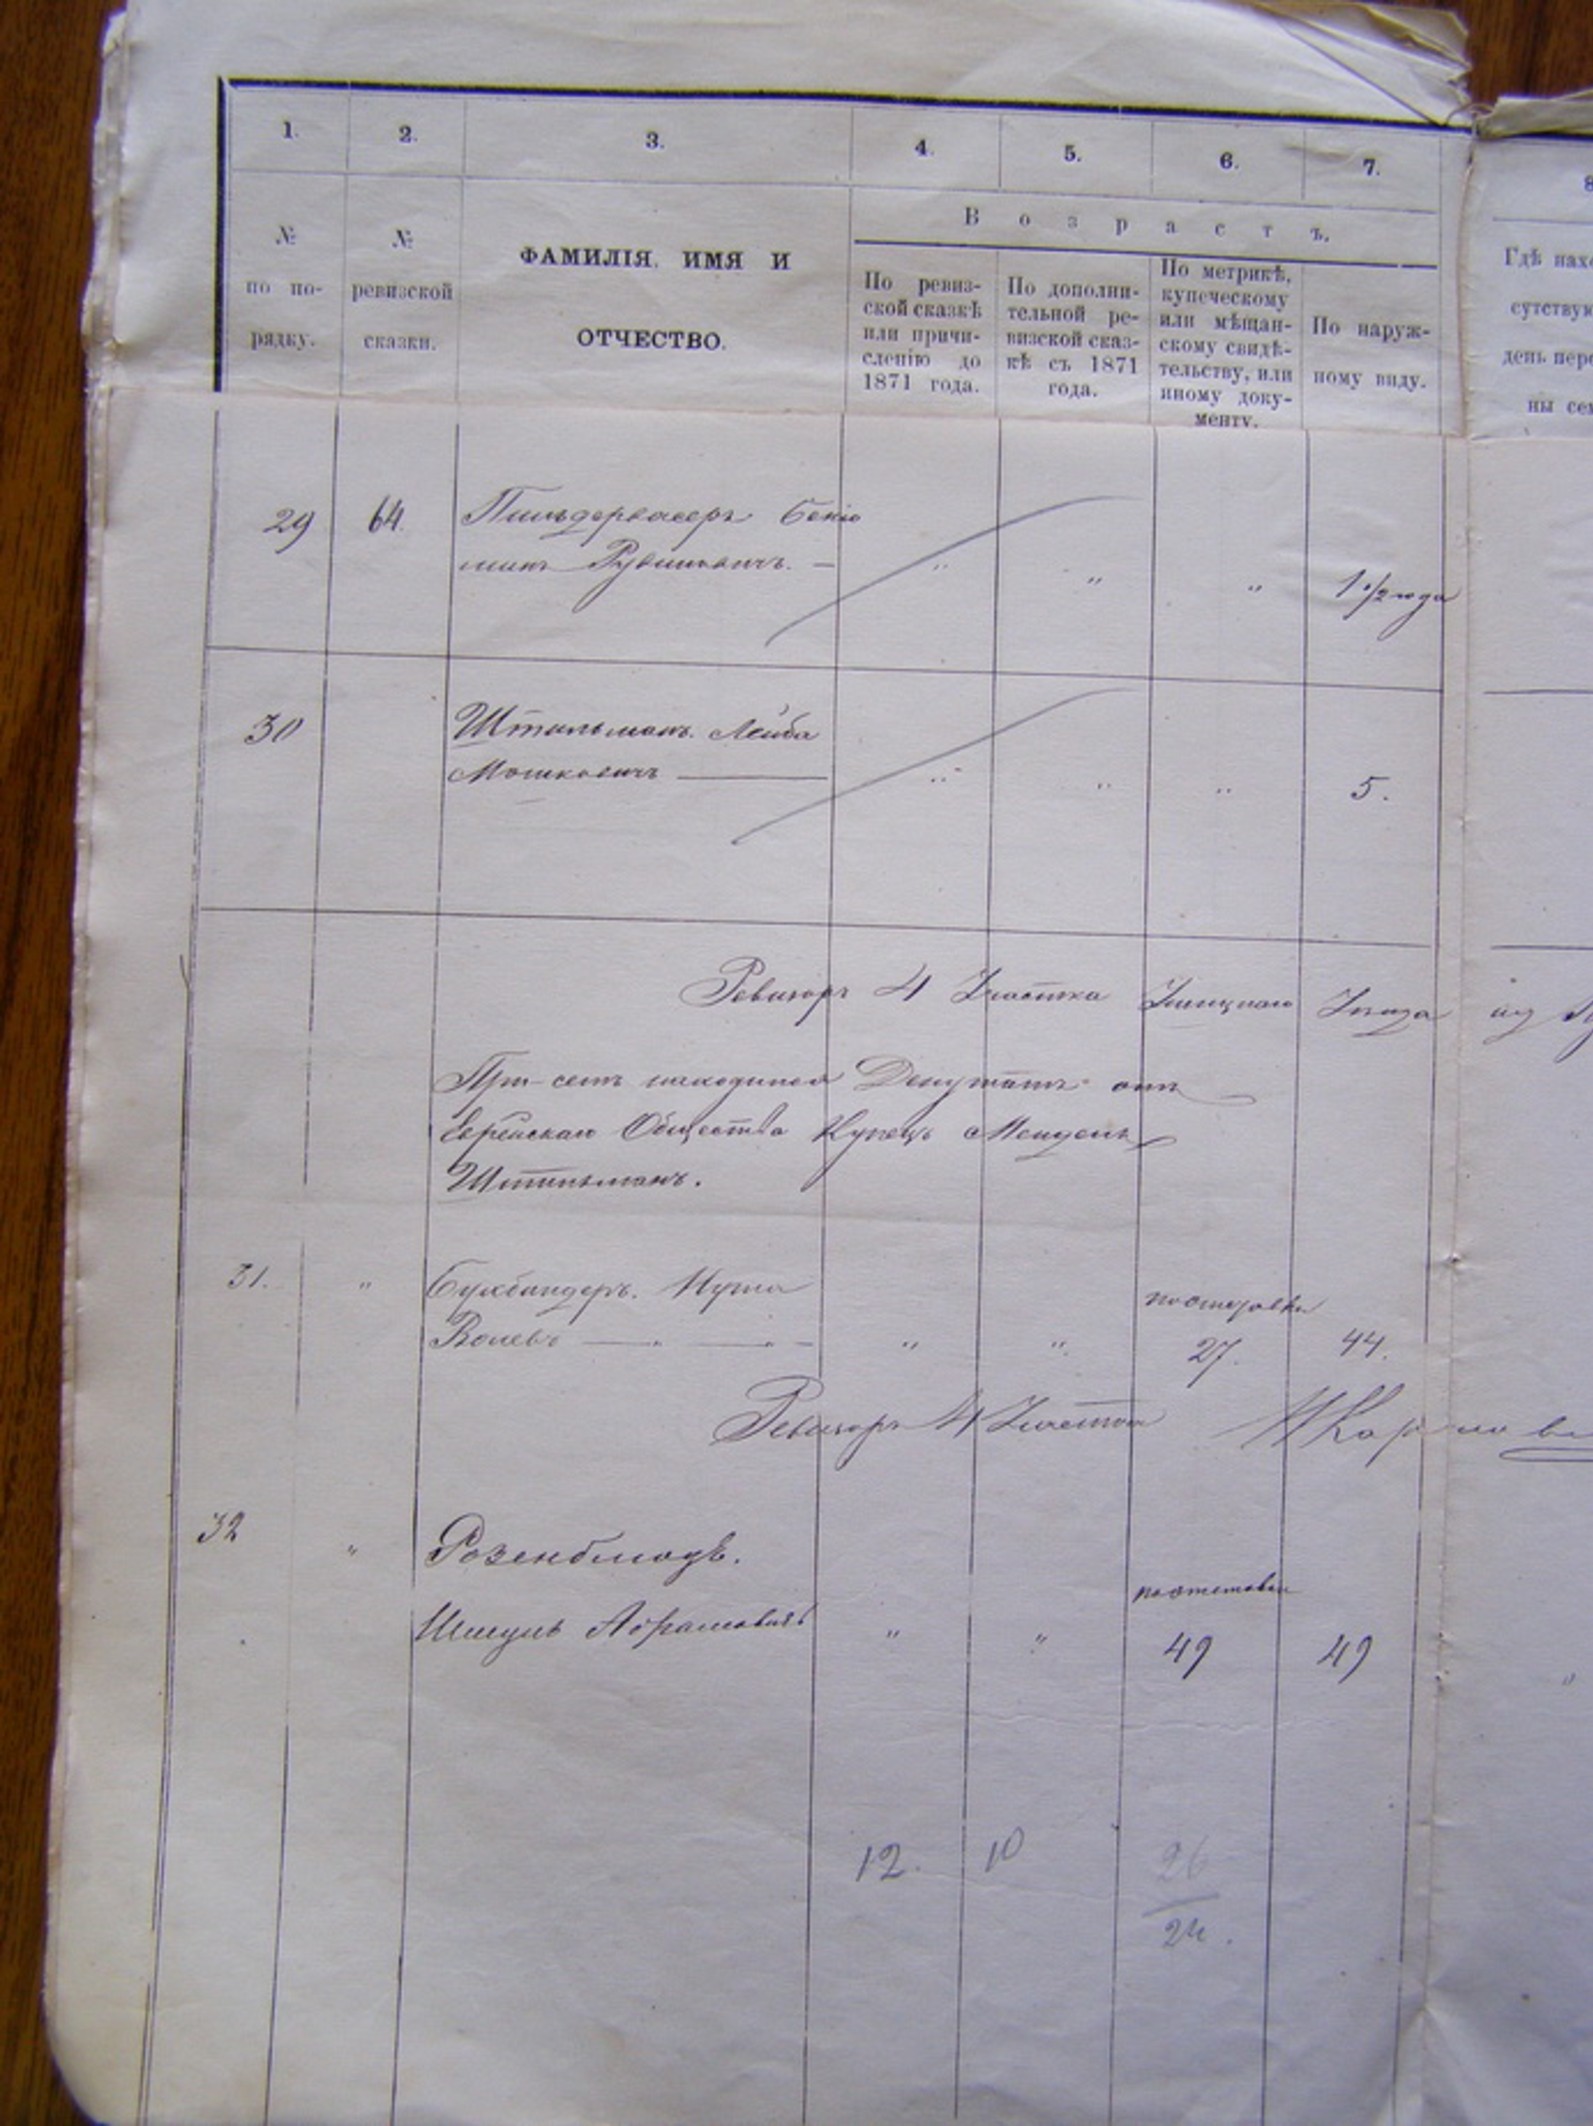 1. 2. 3. 4. 5. 6. 7. 8
№ по по-рядку.
№ ревизской сказки.
ФАМИЛІЯ, ИМЯ И
ОТЧЕСТВО.
Возрастъ.
По ревиз-
ской сказкѣ
или причи-
сленію до
1871 года.
По дополни-
тельной ре-
визской сказ-
кѣ съ 1871
года.
По метрикѣ,
купеческому
или мѣщан-
скому свидѣ-
тельству, или
иному доку-
менту.
По наруж-
ному виду.
Гдѣ нахо
сутствую
день пере
ны сем
29 64. Пильдервасеръ Беніо
минъ Рувиновичъ. — " " " 1 1/2 года
30 Штильманъ Лейба
Мошковичъ " " " 5.
Ревизоръ 4 Участка Ушицкаго Уѣзда
При семъ находился Депутатъ отъ
Еврейскаго Общества Купецъ Мендель
Штильманъ.
31. " Букбиндеръ.
44.
27.
Ревизоръ 4 Участка
32 " Розенблюдъ.
Шмуль Абрамовичъ " " 49 49
12. 10 26
24.